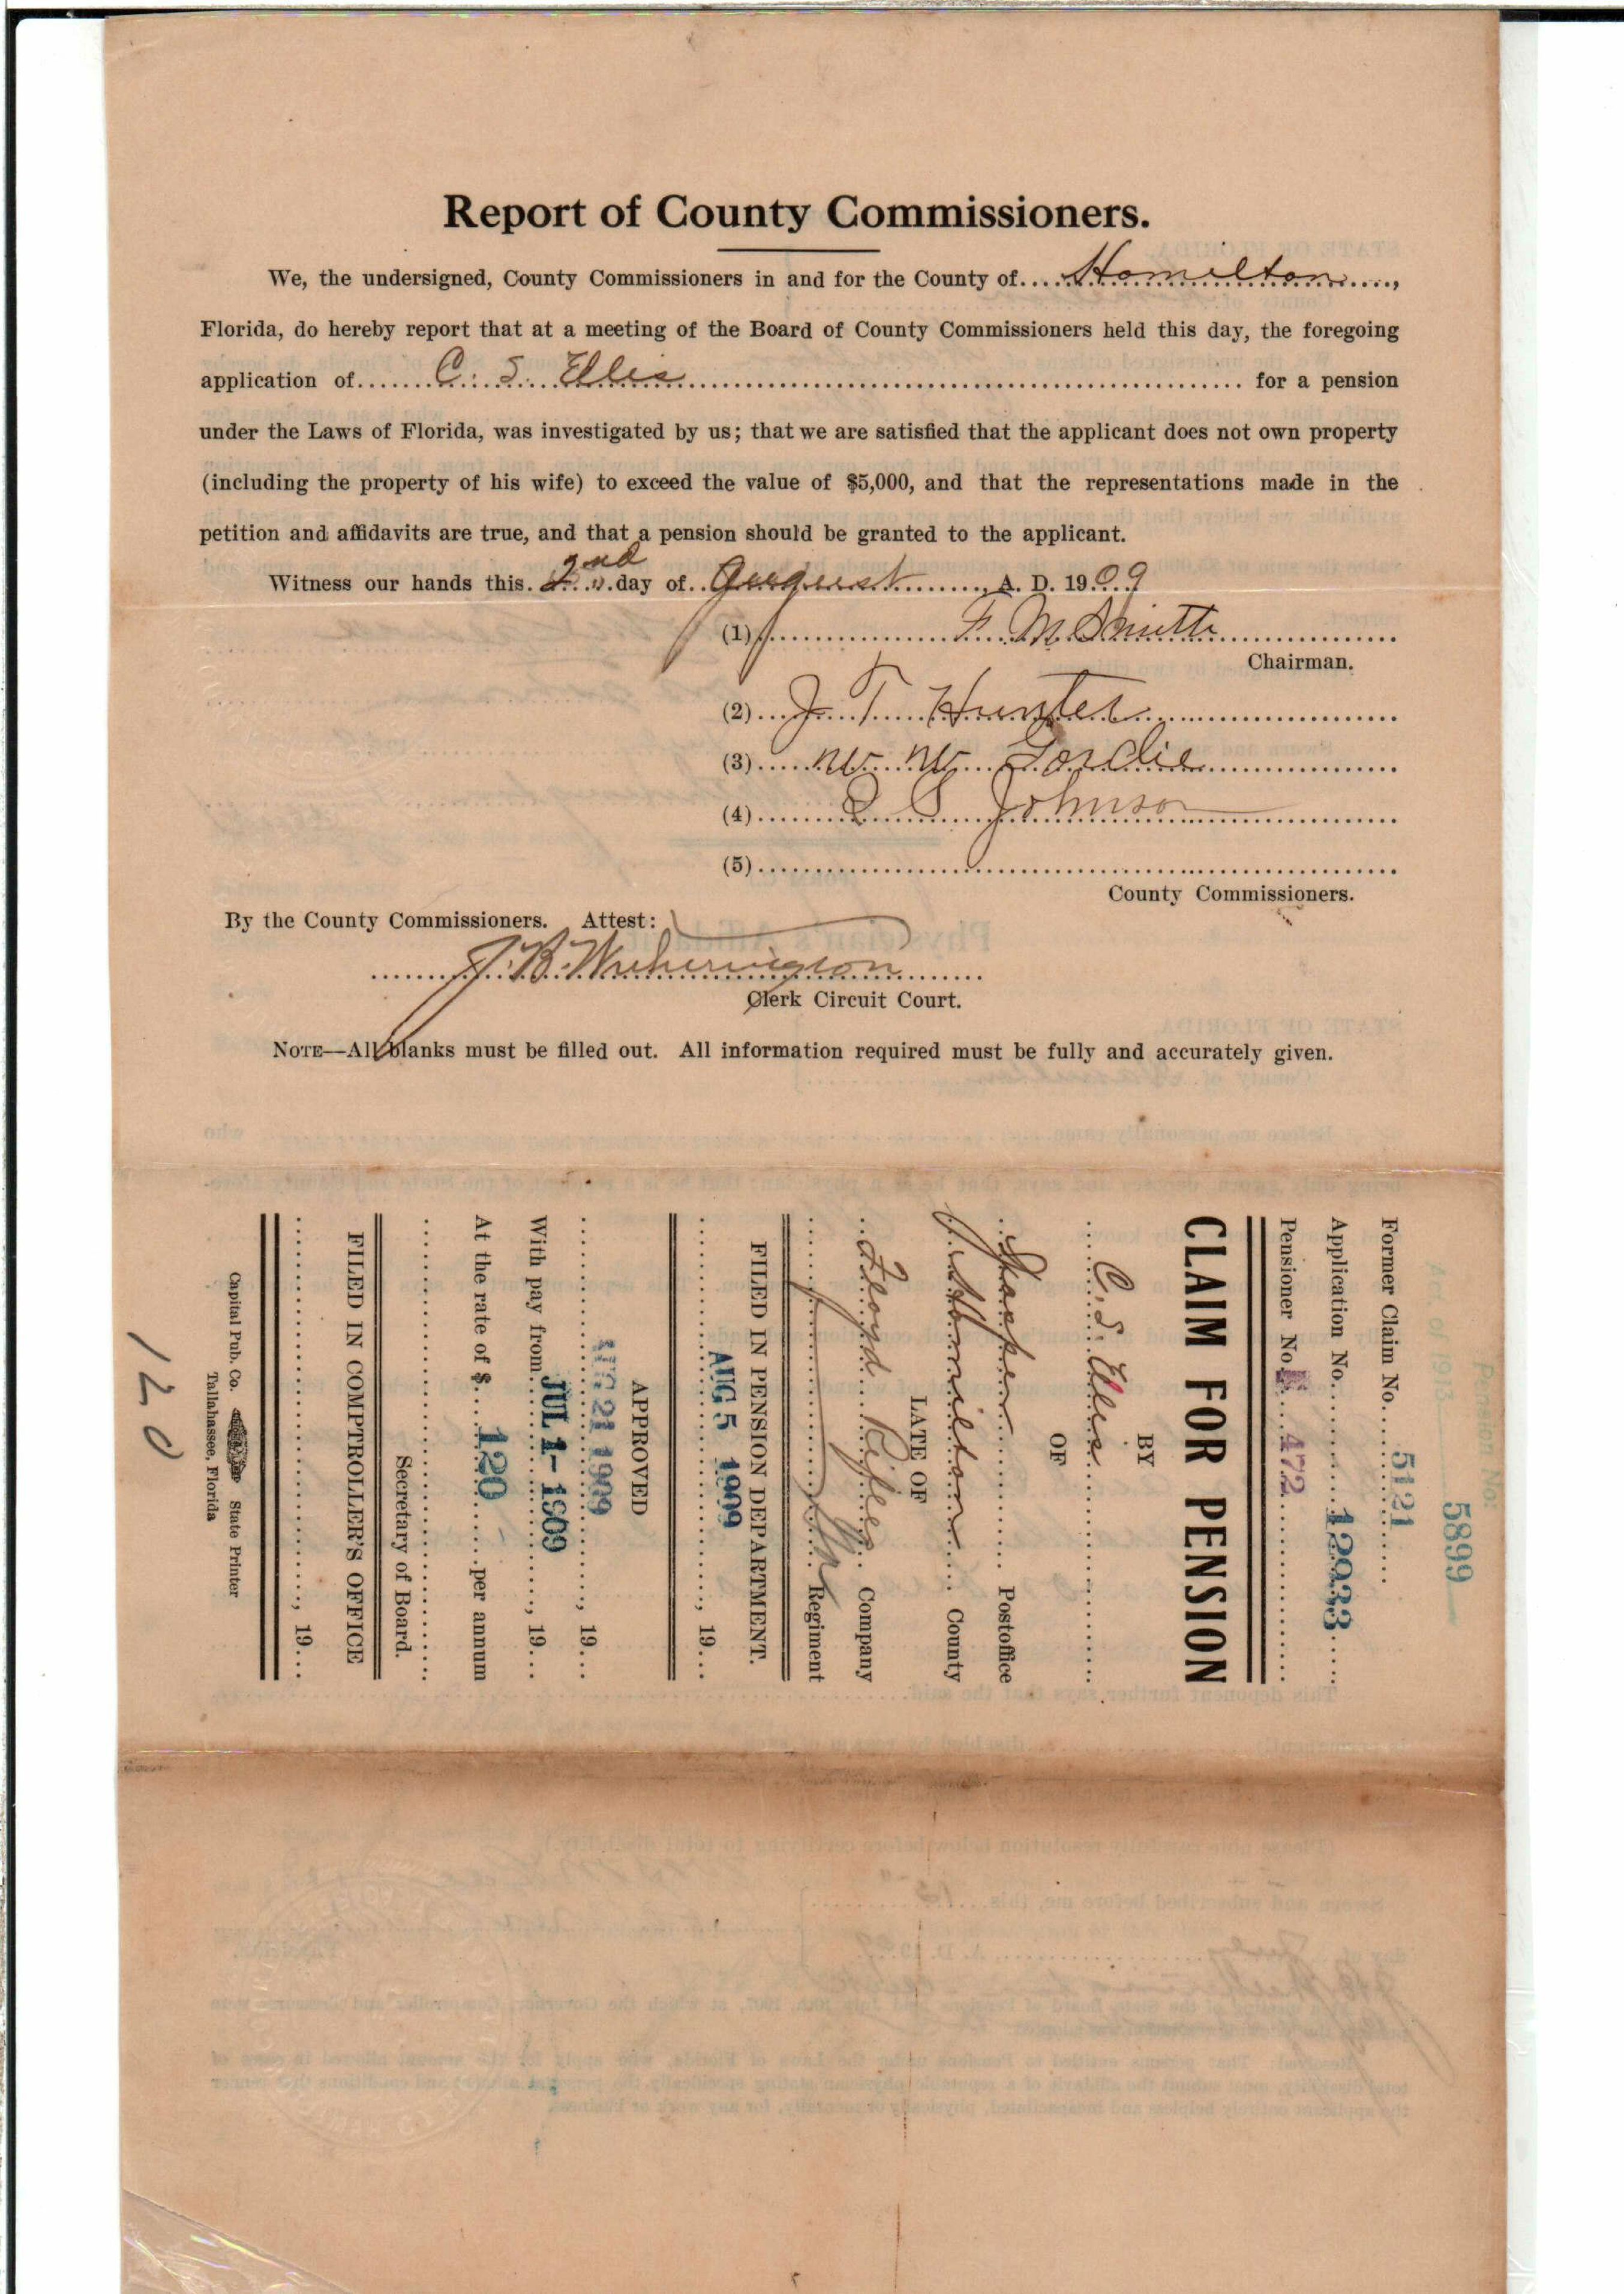 Report of County Commissioners.
We, the undersigned, County Commissioners in and for the County of....Hamilton....,
Florida, do hereby report that at a meeting of the Board of County Commissioners held this day, the foregoing
application of.......C. S. Ellis....... for a pension
under the Laws of Florida, was investigated by us; that we are satisfied that the applicant does not own property
(including the property of his wife) to exceed the value of $5,000, and that the representations made in the
petition and affidavits are true, and that a pension should be granted to the applicant.
Witness our hands this. 2nd day of. August......., A. D. 1909
(1)..........F. M. Smith..........
Chairman.
(2)...J. T. Hunter..........
(3)..........
(4)......... S Johnson..........
(5)..........
County Commissioners.
By the County Commissioners. Attest:
.......J. B. Witherington.......
Clerk Circuit Court.
NOTE—All blanks must be filled out. All information required must be fully and accurately given.
Pension No.
5899
Act of 1913
Former Claim No....5121....
Application No....12933....
Pensioner No....472....
CLAIM FOR PENSION
BY
....C. S. Ellis....
OF
.... Postoffice
....Hamilton.... County
LATE OF
....Floyd Rifles.. Company
.... Regiment
FILED IN PENSION DEPARTMENT.
AUG 5 1909 ...., 19...
APPROVED
AUG 21 1909 ...., 19...
With pay from JUL 1- 1909 ...., 19...
At the rate of $....120....per annum
Secretary of Board.
FILED IN COMPTROLLER'S OFFICE
...., 19...
Capital Pub. Co. State Printer
Tallahassee, Florida
120